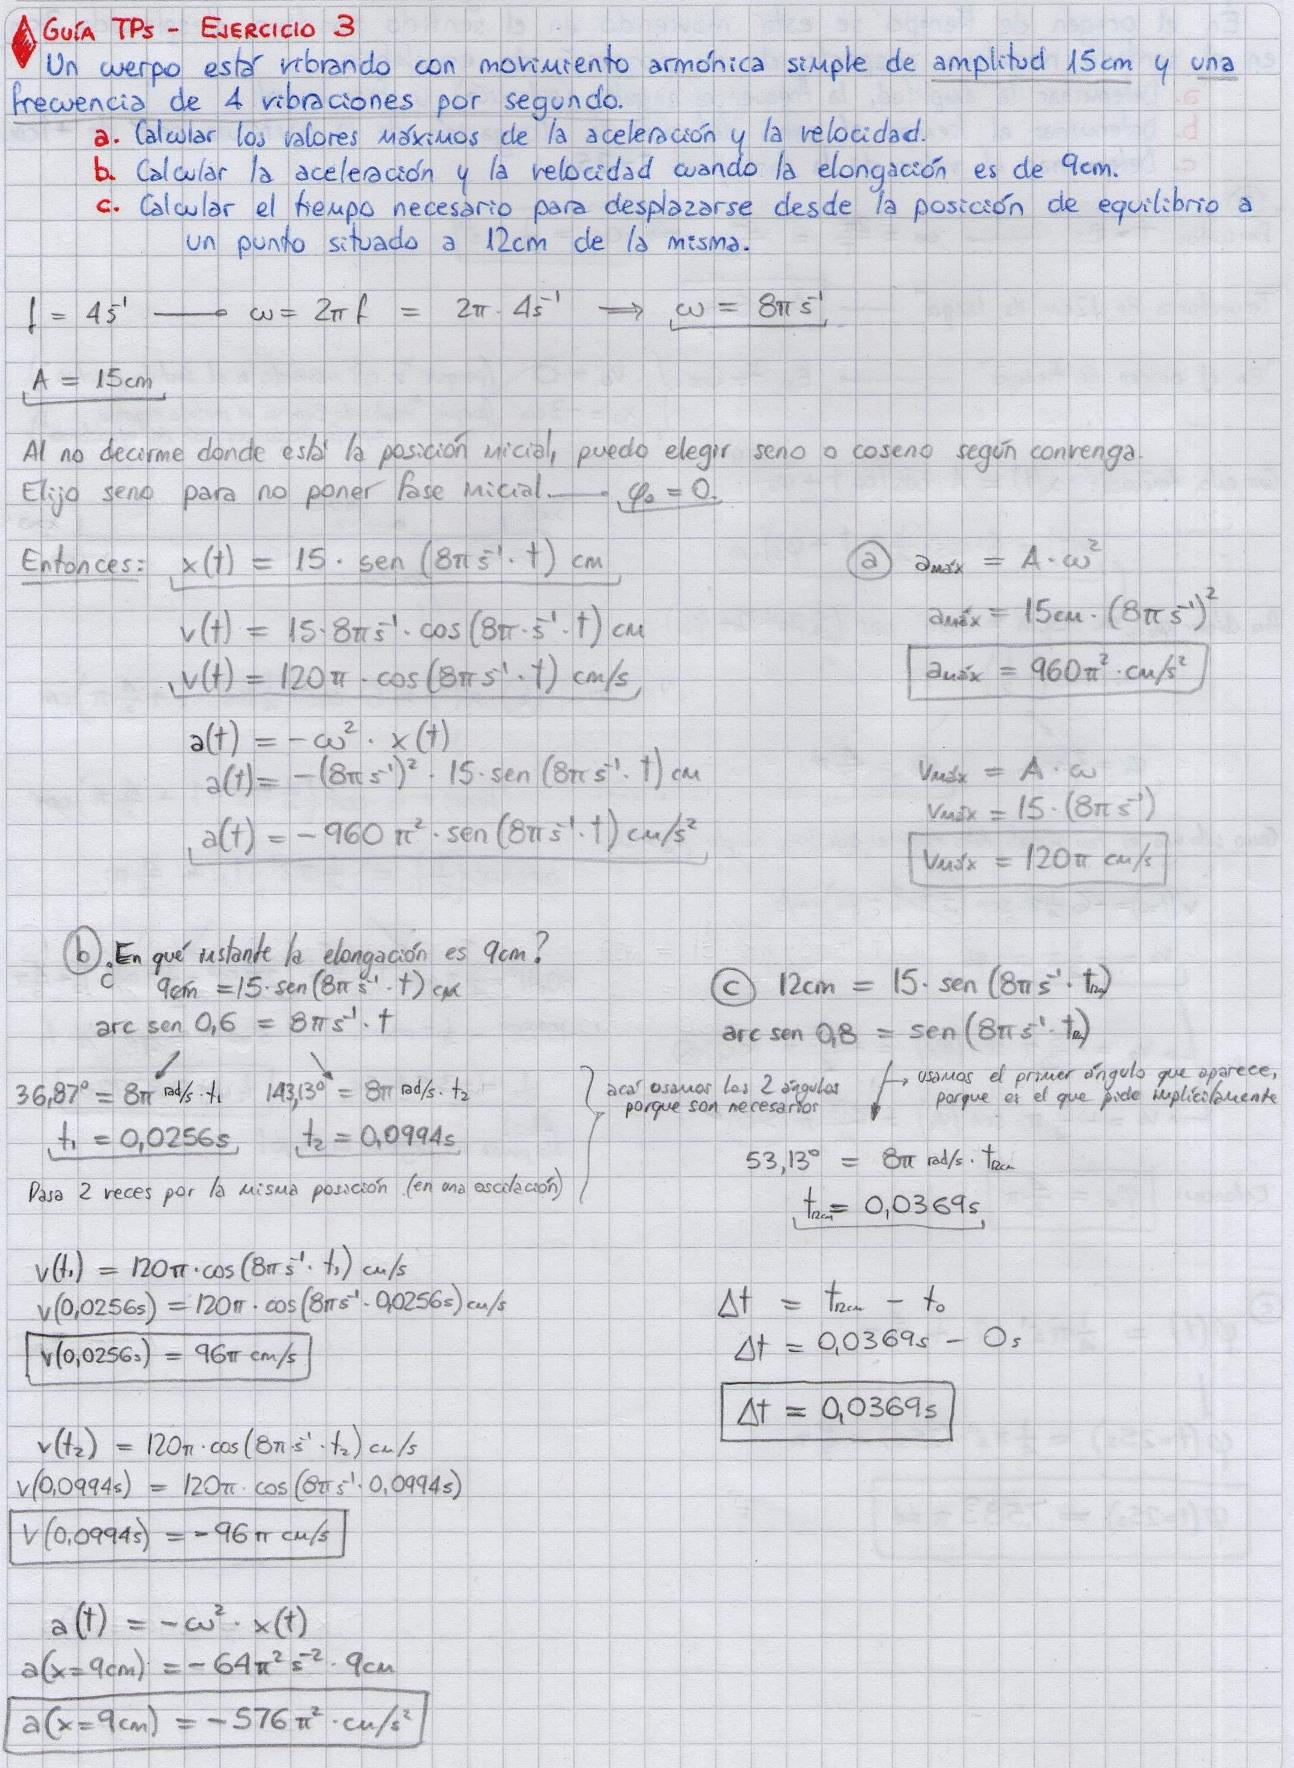 GUÍA TPs - EJERCICIO 3
Un cuerpo está vibrando con movimiento armónica simple de amplitud 15cm y una
frecuencia de 4 vibraciones por segundo.
a. Calcular los valores máximos de la aceleración y la velocidad.
b. Calcular la aceleración y la velocidad cuando la elongación es de 9cm.
c. Calcular el tiempo necesario para desplazarse desde la posición de equilibrio a
un punto situado a 12cm de la misma.
f = 4s⁻¹ —— ω = 2π f = 2π · 4s⁻¹ ⟹ ω = 8π s⁻¹
A = 15cm
Al no decirme donde está la posición inicial, puedo elegir seno o coseno según convenga.
Elijo seno para no poner fase inicial. —— φ₀ = 0.
Entonces: x(t) = 15 · sen (8π s⁻¹ · t) cm
v(t) = 15·8π s⁻¹ · cos (8π · s⁻¹ · t) cm
v(t) = 120π · cos (8π s⁻¹ · t) cm/s
a(t) = -ω² · x(t)
a(t) = -(8π s⁻¹)² · 15 · sen (8π s⁻¹ · t) cm
a(t) = -960 π² · sen (8π s⁻¹ · t) cm/s²
a) amáx = A · ω²
amáx = 15cm · (8π s⁻¹)²
amáx = 960π² · cm/s²
Vmáx = A · ω
Vmáx = 15 · (8π s⁻¹)
Vmáx = 120π cm/s
b) ¿En qué instante la elongación es 9cm?
9cm = 15 · sen (8π s⁻¹ · t) cm
arc sen 0,6 = 8π s⁻¹ · t
36,87° = 8π rad/s · t₁ 143,13° = 8π rad/s · t₂
t₁ = 0,0256s t₂ = 0,0994s
Pasa 2 veces por la misma posición (en una oscilación)
acá usamos los 2 ángulos
porque son necesarios
v(t₁) = 120π · cos (8π s⁻¹ · t₁) cm/s
v(0,0256s) = 120π · cos (8π s⁻¹ · 0,0256s) cm/s
v(0,0256s) = 96π cm/s
v(t₂) = 120π · cos (8π · s⁻¹ · t₂) cm/s
v(0,0994s) = 120π · cos (8π s⁻¹ · 0,0994s)
v(0,0994s) = -96π cm/s
a(t) = -ω² · x(t)
a(x=9cm) = -64π² s⁻² · 9cm
a(x=9cm) = -576π² · cm/s²
c) 12cm = 15 · sen (8π s⁻¹ · t₁₂)
arc sen 0,8 = sen (8π s⁻¹ · t₁₂)
usamos el primer ángulo que aparece,
porque es el que pide implícitamente
53,13° = 8π rad/s · t12cm
t12cm = 0,0369s
Δt = t12cm - t₀
Δt = 0,0369s - 0s
Δt = 0,0369s